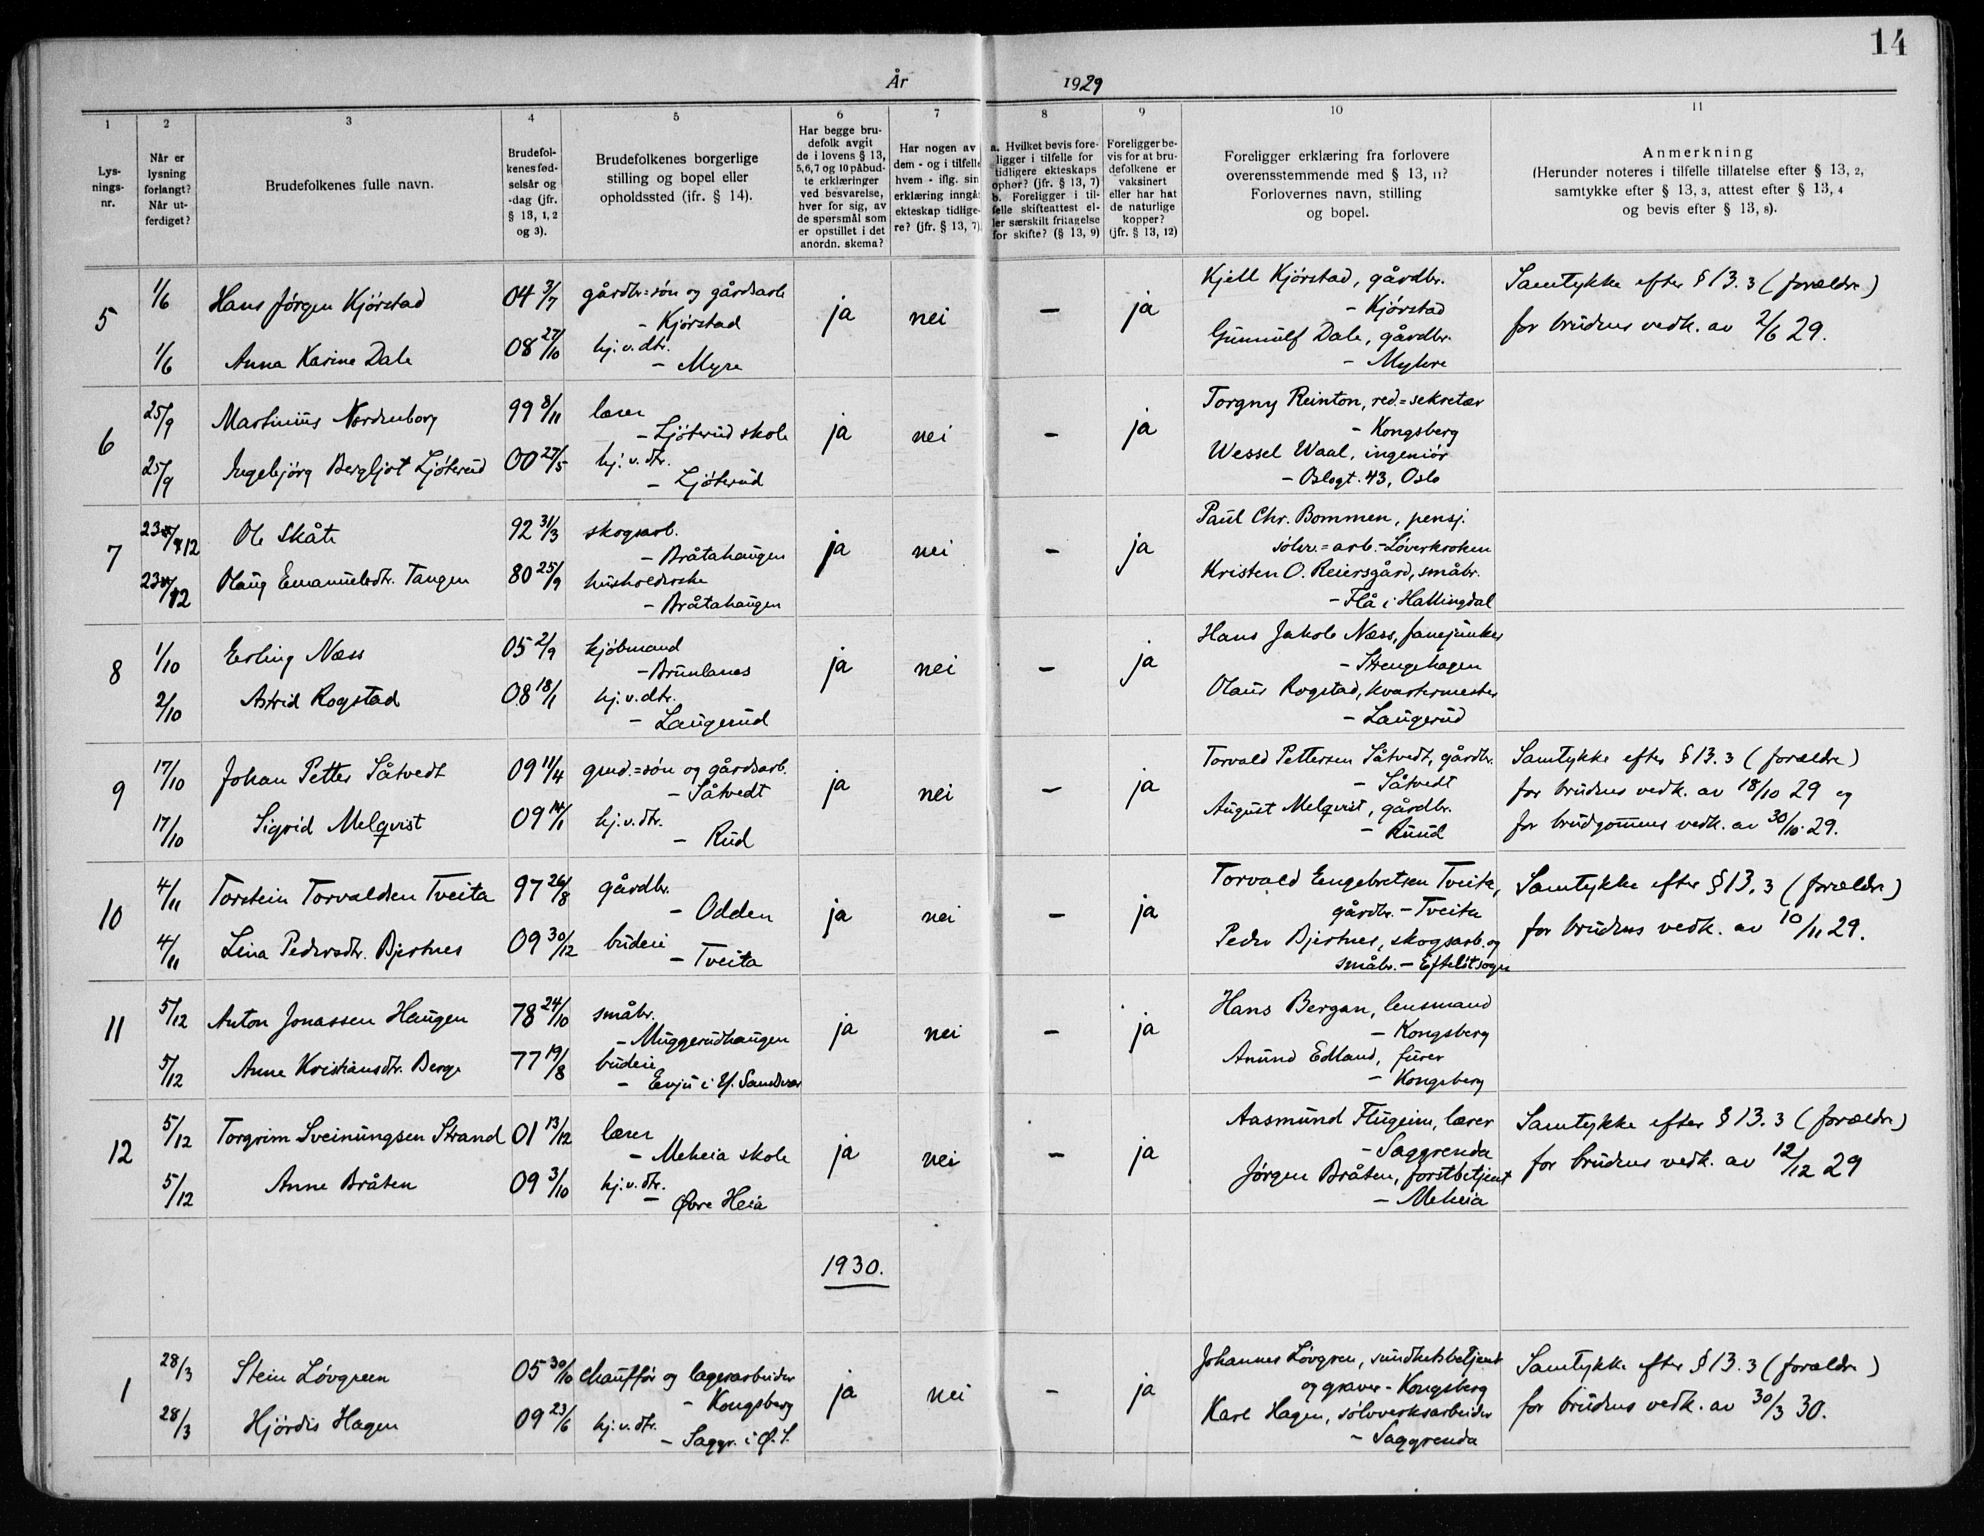 14
År 1929
1 2 3 4 5 6 7 8 9 10 11
Lysnings-nr.
Når er lysning forlangt? Når utferdiget?
Brudefolkenes fulle navn.
Brudefolkenes fødselsår og -dag (jfr. § 13, 1, 2 og 3).
Brudefolkenes borgerlige stilling og bopel eller opholdssted (jfr. § 14).
Har begge brudefolk avgit de i lovens § 13, 5,6,7 og 10 påbudte erklæringer ved besvarelse, hver for sig, av de spørsmål som er opstillet i det anordn. skema?
Har nogen av dem - og i tilfelle hvem - iflg. sin erklæring inngåt ekteskap tidligere? (jfr. § 13, 7).
a. Hvilket bevis foreligger i tilfelle for tidligere ekteskaps ophør? (jfr. § 13, 7) b. Foreligger i tilfelle skifteattest eller særskilt fritagelse for skifte? (§ 13, 9)
Foreligger bevis for at brudefolkene er vaksinert eller har hat de naturlige kopper? (jfr. § 13, 12)
Foreligger erklæring fra forlovere overensstemmende med § 13, 11? Forlovernes navn, stilling og bopel.
Anmerkning (Herunder noteres i tilfelle tillatelse efter § 13, 2, samtykke efter § 13, 3, attest efter § 13, 4 og bevis efter § 13, 8).
5 1/6 Hans Jørgen Kjørstad 04 3/7 gårdbr=søn og gårdsarb - Kjørstad ja nei - ja Kjell Kjørstad, gårdbr. - Kjørstad Samtykke efter § 13. 3 (forældre)
1/6 Anna Karine Dale 08 27/10 hj.v.dtr. - Myre Gunnulf Dale, gårdbr. - Myhre for brudens vedk. av 2/6 29.
6 25/9 Martinius Nordenborg 99 8/11 lærer - Ljøterud skole ja nei - ja Torgny Reinton, red.=sekretær - Kongsberg
25/9 Ingebjørg Bergljot Ljøterud 00 27/5 hj.v.dtr. - Ljøterud Wessel Waal, ingeniør - Oslogt. 43, Oslo
7 23/12 Ole Skåti 92 31/3 skogsarb. - Bråtahaugen ja nei - ja Paul Chr. Bommen, pensj. sølvv.=arb. - Løverkroken
23/12 Olaug Emanuelsdtr. Tangen 80 25/9 husholderske - Bråtahaugen Kristen O. Reiersgård, småbr. - Flå i Hallingdal
8 1/10 Erling Næss 05 2/9 kjøbmand - Brunlanes ja nei - ja Hans Jakob Næss, fanejunker - Strengehagen
2/10 Astrid Rogstad 08 18/1 hj.v.dtr. - Laugerud Olaus Rogstad, kvartermester - Laugerud
9 17/10 Johan Petter Såtvedt 09 11/4 grud.=søn og gårdsarb. - Såtvedt ja nei - ja Torvald Pettersen Såtvedt, gårdbr. - Såtvedt Samtykke efter § 13. 3 (forældre)
17/10 Sigrid Melqvist 09 14/1 hj.v.dtr. - Rud August Melqvist, gårdbr. - Ruud for brudens vedk. av 18/10 29 og for brudgommens vedk. av 30/10.29.
10 4/11 Torstein Torvaldsen Tveita 97 26/8 gårdbr. - Odden ja nei - ja Torvald Engebretsen Tveita, gårdbr. - Tveita Samtykke efter § 13. 3 (forældre)
4/11 Lina Pedersdtr. Bjertnes 09 30/12 budeie - Tveita Peder Bjertnes, skogsarb. og småbr. - Efteløtsogn for brudens vedk. av 10/11 29.
11 5/12 Anton Jonassen Haugen 78 24/10 småbr. - Muggerudhaugen ja nei - ja Hans Bergan, lensmand - Kongsberg
5/12 Anne Kristiansdtr. Berge 77 19/8 budeie - Evju i Y. Sandsvær Anund Edland, furer - Kongsberg
12 5/12 Torgrim Sveinungsen Strand 01 13/12 lærer - Meheia skole ja nei - ja Aasmund Flugeim, lærer - Saggrenda Samtykke efter § 13. 3 (forældre)
5/12 Anne Bråten 09 3/10 hj.v.dtr. - Øvre Heia Jørgen Bråten, forstbetjent - Meheia for brudens vedk. av 12/12 29
1930.
1 28/3 Stein Løvgreen 05 30/10 chauffør og lagerarbeider - Kongsberg ja nei - ja Johannes Løvgren, sundhetsbetjent og graver - Kongsberg Samtykke efter § 13. 3 (forældre)
28/3 Hjørdis Hagen 09 23/6 hj.v.dtr. - Saggr. i Ø.S. Karl Hagen, sølvverksarbeider - Saggrenda for brudens vedk. av 30/3 30.